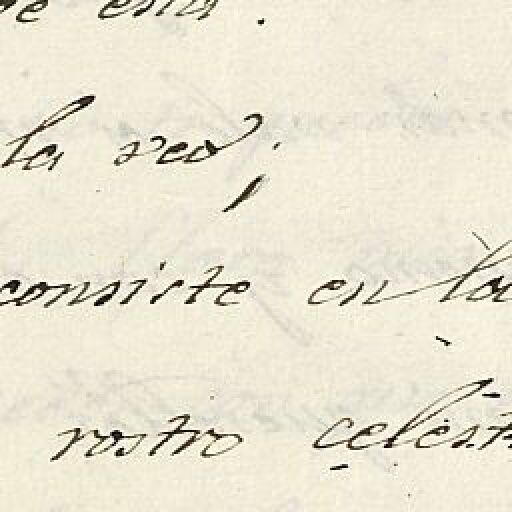 la red;
consiste en la
rostro celest